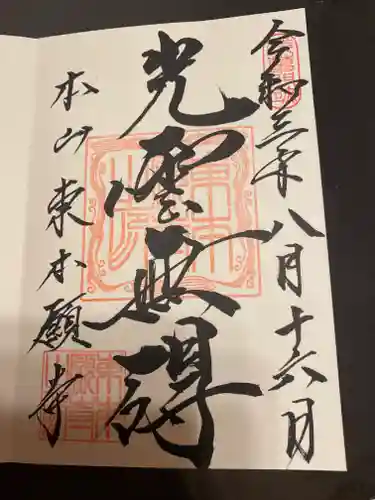 令和三年八月十六月
光雲無碍
本山東本願寺